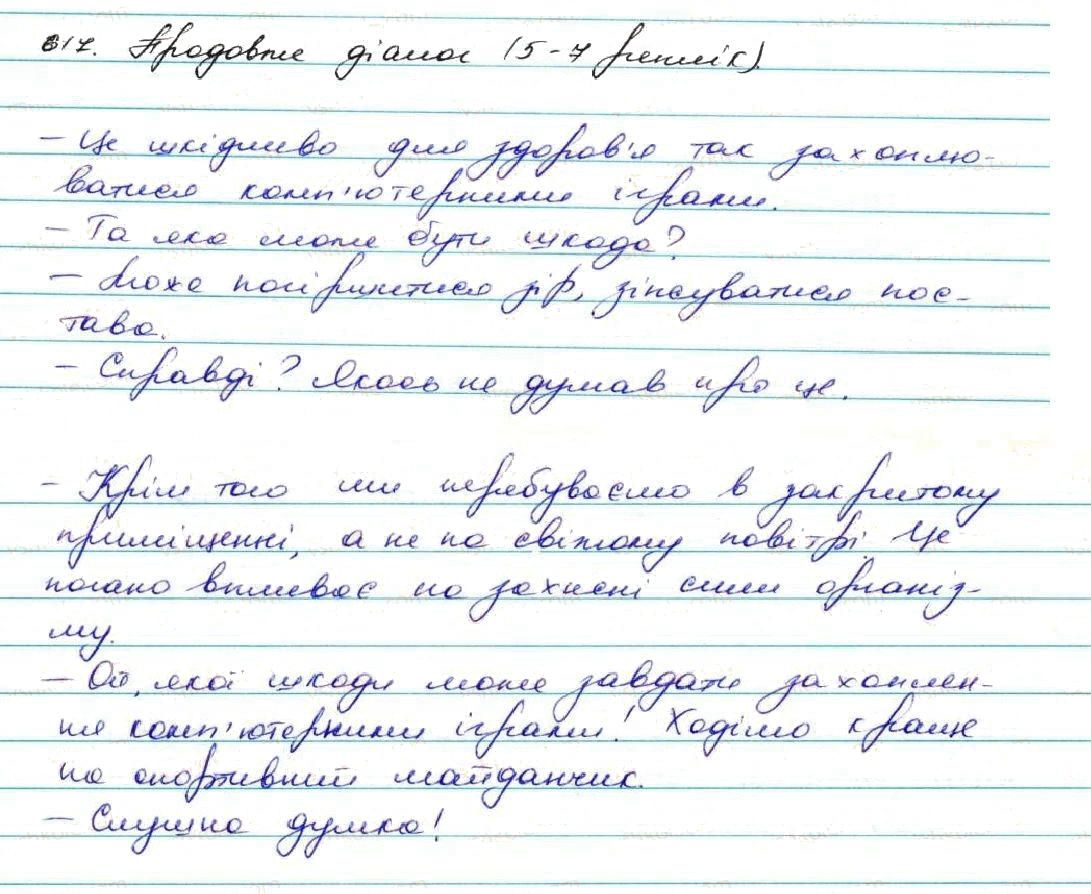 617. Продовже діалог (5-7 реплік).
– Це шкідливо для здоров'я так захоплю-
ватися комп'ютерними іграми.
– Та яка може бути шкода?
– Може погіршитися зір, зіпсуватися пос-
тава.
– Справді? Якось не думав про це.
– Крім того ми перебуваємо в закритому
приміщенні, а не на свіжому повітрі. Це
погано впливає на захисні сили організ-
му.
– Ой, якої шкоди може завдати захоплен-
ня комп'ютерними іграми! Ходімо краще
на спортивний майданчик.
– Слушна думка!